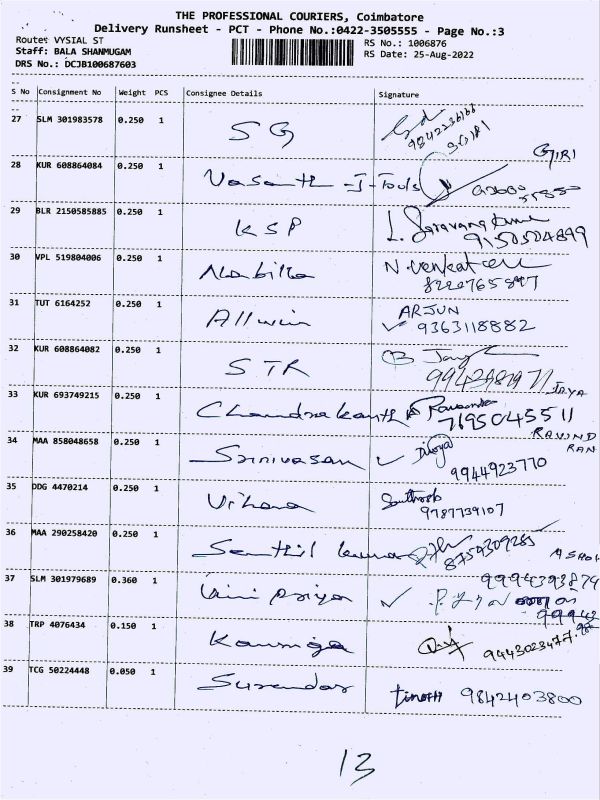 THE PROFESSIONAL COURIERS, Coimbatore
Delivery Runsheet - PCT - Phone No.:0422-3505555 - Page No.:3
Route: VYSIAL ST RS No.: 1006876
Staff: BALA SHANMUGAM RS Date: 25-Aug-2022
DRS No.: DCJB100687603
S No Consignment No Weight PCS Consignee Details Signature
27 SLM 301983578 0.250 1 SG
GIRI
28 KUR 608864084 0.250 1 Vasanth - J - Tools
29 BLR 2150585885 0.250 1 KSP
9150504899
30 VPL 519804006 0.250 1 Nabilla N. Venkat
31 TUT 6164252 0.250 1 Allwin ARJUN
9363118882
32 KUR 608864082 0.250 1 STR
JAYA
33 KUR 693749215 0.250 1 Chandrakanth
7695045511
RAVIND
RAN
34 MAA 858048658 0.250 1 Srinivasan Divya
9944923770
35 DDG 4470214 0.250 1 Vihana
9787739107
36 MAA 290258420 0.250 1 Senthil kumar 8754309285
ASHOK
9994393879
37 SLM 301979689 0.360 1 priya
38 TRP 4076434 0.150 1 Kanniga
9443023477
39 TCG 50224448 0.050 1 Surendar 9842403800
13